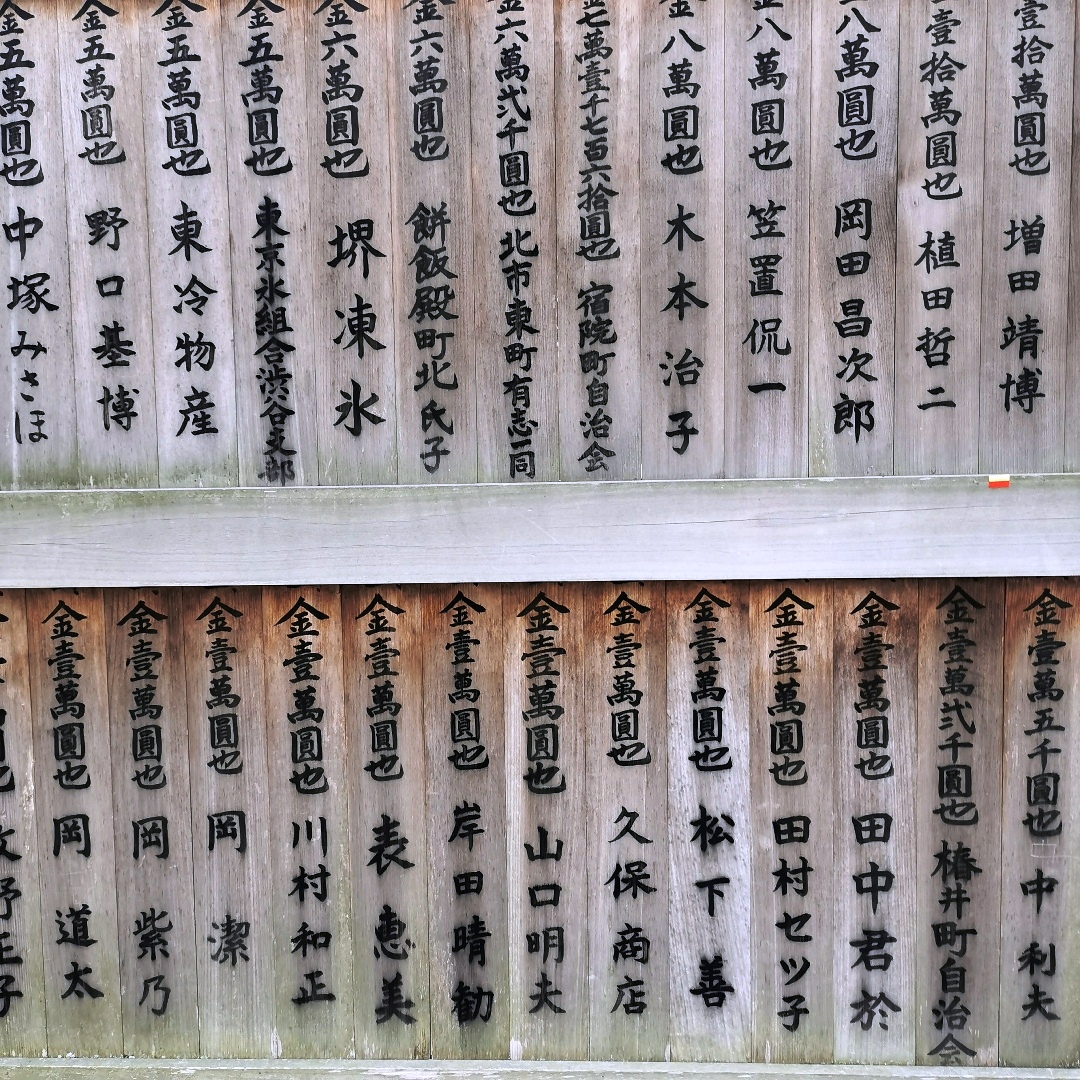 壹拾萬圓也 増田靖博
金壹拾萬圓也 植田哲二
金八萬圓也 岡田昌次郎
金八萬圓也 笠置侃一
金八萬圓也 木本治子
金七萬壹千七百六拾圓也 宿院町自治会
金六萬弐千圓也 北市東町有志一同
金六萬圓也 餅飯殿町北氏子
金六萬圓也 堺凍氷
金五萬圓也 東京氷組合渋谷支部
金五萬圓也 東冷物産
金五萬圓也 野口基博
金五萬圓也 中塚みさほ
金壹萬五千圓也 中利夫
金壹萬弐千圓也 椿井町自治会
金壹萬圓也 田中君於
金壹萬圓也 田村セツ子
金壹萬圓也 松下善
金壹萬圓也 久保商店
金壹萬圓也 山口明夫
金壹萬圓也 岸田晴勧
金壹萬圓也 表惠美
金壹萬圓也 川村和正
金壹萬圓也 岡潔
金壹萬圓也 岡紫乃
金壹萬圓也 岡道太